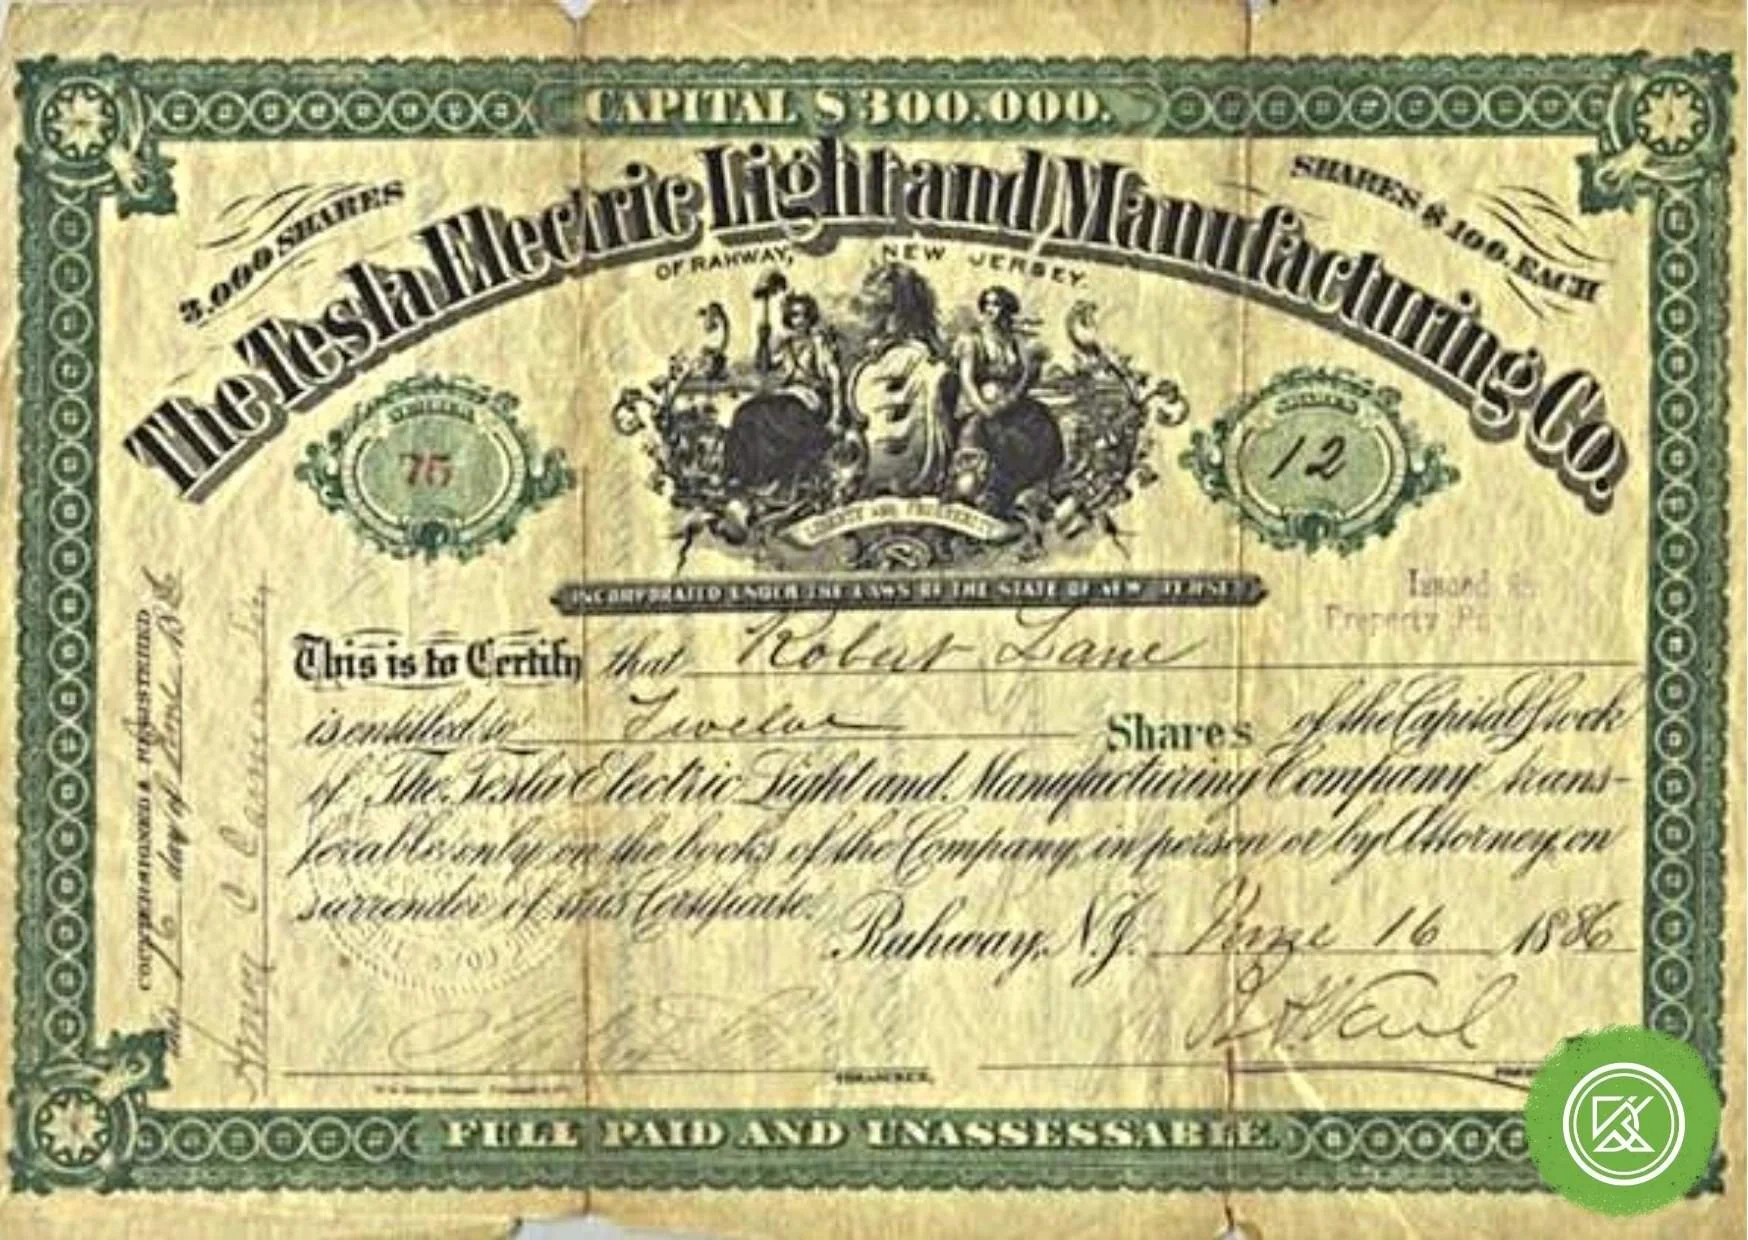 CAPITAL $ 300.000.
3.000 SHARES
SHARES $ 100. EACH
The Tesla Electric Light and Manufacturing Co.
OF RAHWAY, NEW JERSEY.
NUMBER
75
SHARES
12
LIBERTY AND PROSPERITY
INCORPORATED UNDER THE LAWS OF THE STATE OF NEW JERSEY
Issued
Property
This is to Certify that Robert Lane
is entitled to Twelve Shares of the Capital Stock
of The Tesla Electric Light and Manufacturing Company trans-
ferable only on the books of the Company, in person or by Attorney, on
surrender of this Certificate.
Rahway, N.J. June 16 1886
TREASURER.
COUNTERSIGNED & REGISTERED
this 16 day of June 1886
FULL PAID AND UNASSESSABLE.